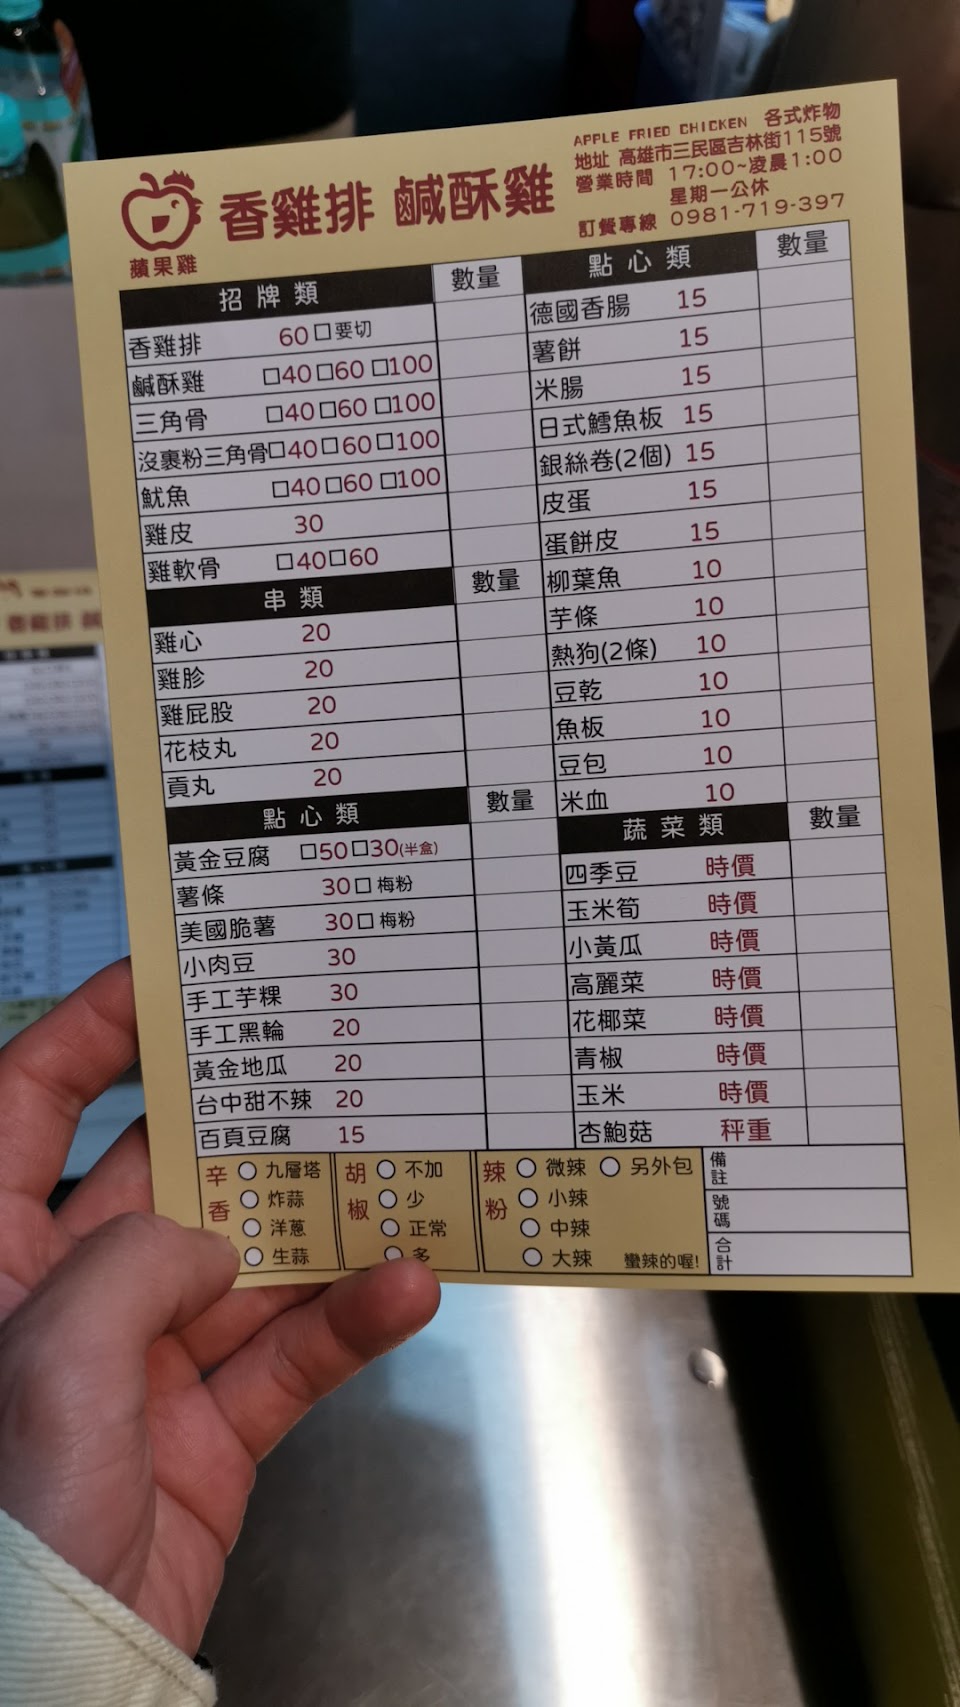 APPLE FRIED CHICKEN 各式炸物
地址 高雄市三民區吉林街115號
營業時間 17:00~凌晨1:00
星期一公休
訂餐專線 0981-719-397
香雞排 鹹酥雞
蘋果雞
招牌類 數量
香雞排 60 □要切
鹹酥雞 □40□60 □100
三角骨 □40□60 □100
沒裹粉三角骨□40□60 □100
魷魚 □40□60 □100
雞皮 30
雞軟骨 □40□60
串類 數量
雞心 20
雞胗 20
雞屁股 20
花枝丸 20
貢丸 20
點心類 數量
黃金豆腐 □50□30(半盒)
薯條 30□ 梅粉
美國脆薯 30□ 梅粉
小肉豆 30
手工芋粿 30
手工黑輪 20
黃金地瓜 20
台中甜不辣 20
百頁豆腐 15
點心類 數量
德國香腸 15
薯餅 15
米腸 15
日式鱈魚板 15
銀絲卷(2個) 15
皮蛋 15
蛋餅皮 15
柳葉魚 10
芋條 10
熱狗(2條) 10
豆乾 10
魚板 10
豆包 10
米血 10
蔬菜類 數量
四季豆 時價
玉米筍 時價
小黃瓜 時價
高麗菜 時價
花椰菜 時價
青椒 時價
玉米 時價
杏鮑菇 秤重
辛香
○ 九層塔
○ 炸蒜
○ 洋蔥
○ 生蒜
胡椒
○ 不加
○ 少
○ 正常
○ 多
辣粉
○ 微辣 ○ 另外包
○ 小辣
○ 中辣
○ 大辣 蠻辣的喔!
備註
號碼
合計